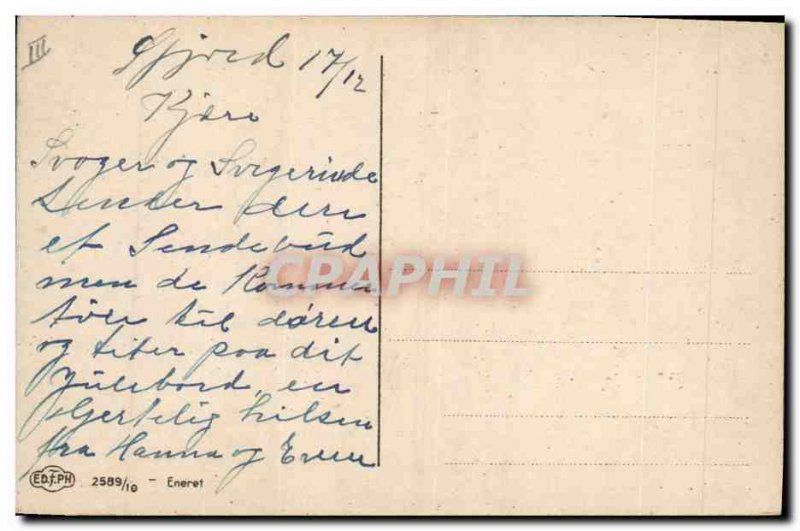 III
17/12
Kjære
Svoger og Svigerinde
Sender dere
et Sendebud
men de Kommer
til døren
og titer paa dit
Julebord, en
Hjertelig hilsen
fra Hanna og Even
CPAPHIL
ED.F.PH 2589/10 - Eneret